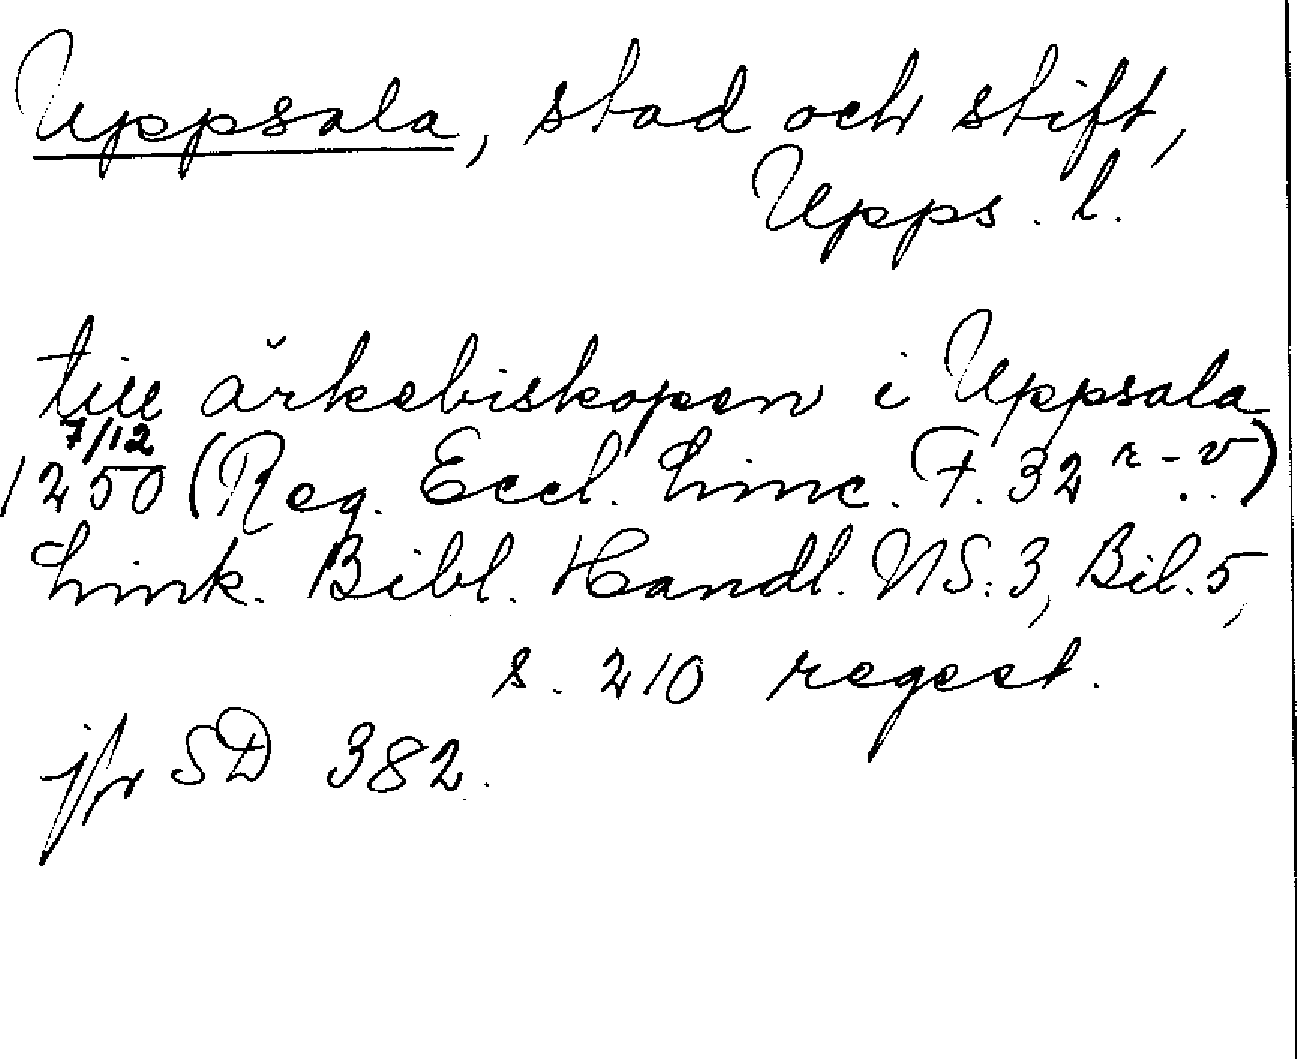 Uppsala, stad och stift,
Upps. l.
till ärkebiskopen i Uppsala
7/12
1250 (Reg. Eccl. Linc. F. 32 r-v)
Link. Bibl. Handl. NS: 3, Bil. 5,
s. 210 regest.
jfr SD 382.